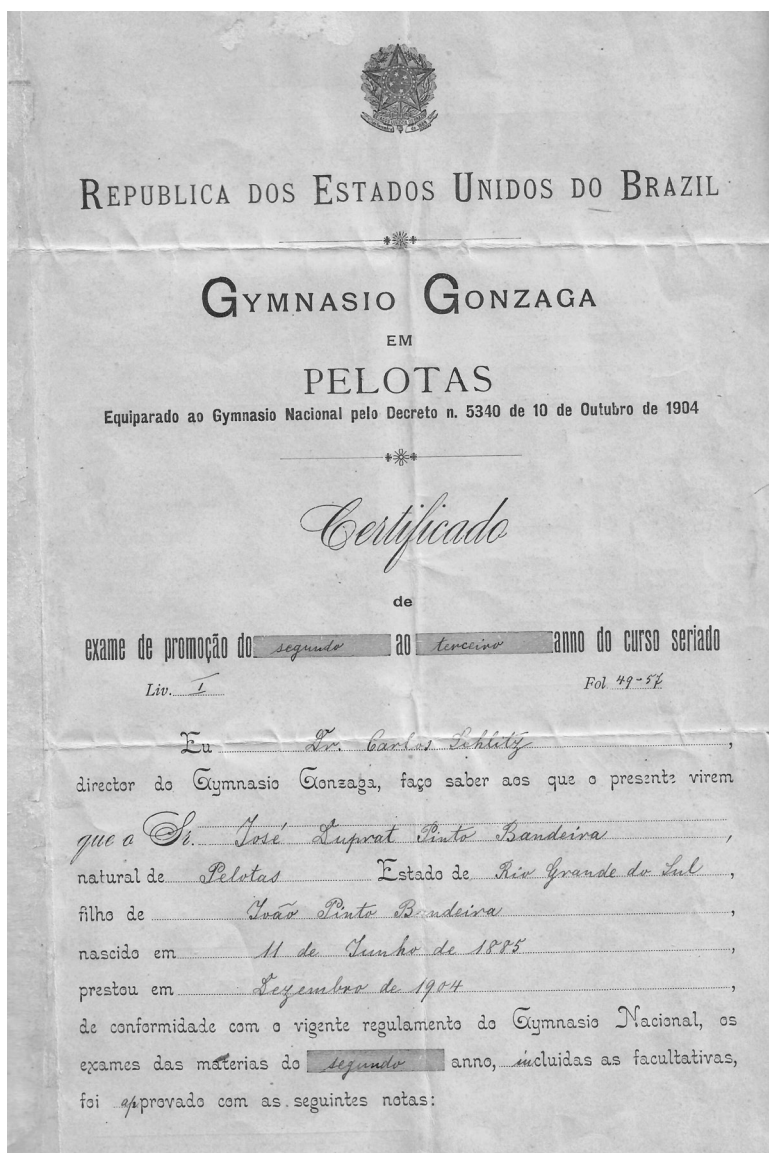 REPUBLICA DOS ESTADOS UNIDOS DO BRAZIL
GYMNASIO GONZAGA
EM
PELOTAS
Equiparado ao Gymnasio Nacional pelo Decreto n. 5340 de 10 de Outubro de 1904
Certificado
de
exame de promoção do segundo ao terceiro anno do curso seriado
Liv. I Fol 49-57
Eu Dr. Carlos Schlitz,
director do Gymnasio Gonzaga, faço saber aos que o presente virem
que o Sr. José Duprat Pinto Bandeira,
natural de Pelotas Estado de Rio Grande do Sul,
filho de João Pinto Bandeira,
nascido em 11 de Junho de 1885,
prestou em Dezembro de 1904,
de conformidade com o vigente regulamento do Gymnasio Nacional, os
exames das materias do segundo anno, incluidas as facultativas,
foi approvado com as seguintes notas: